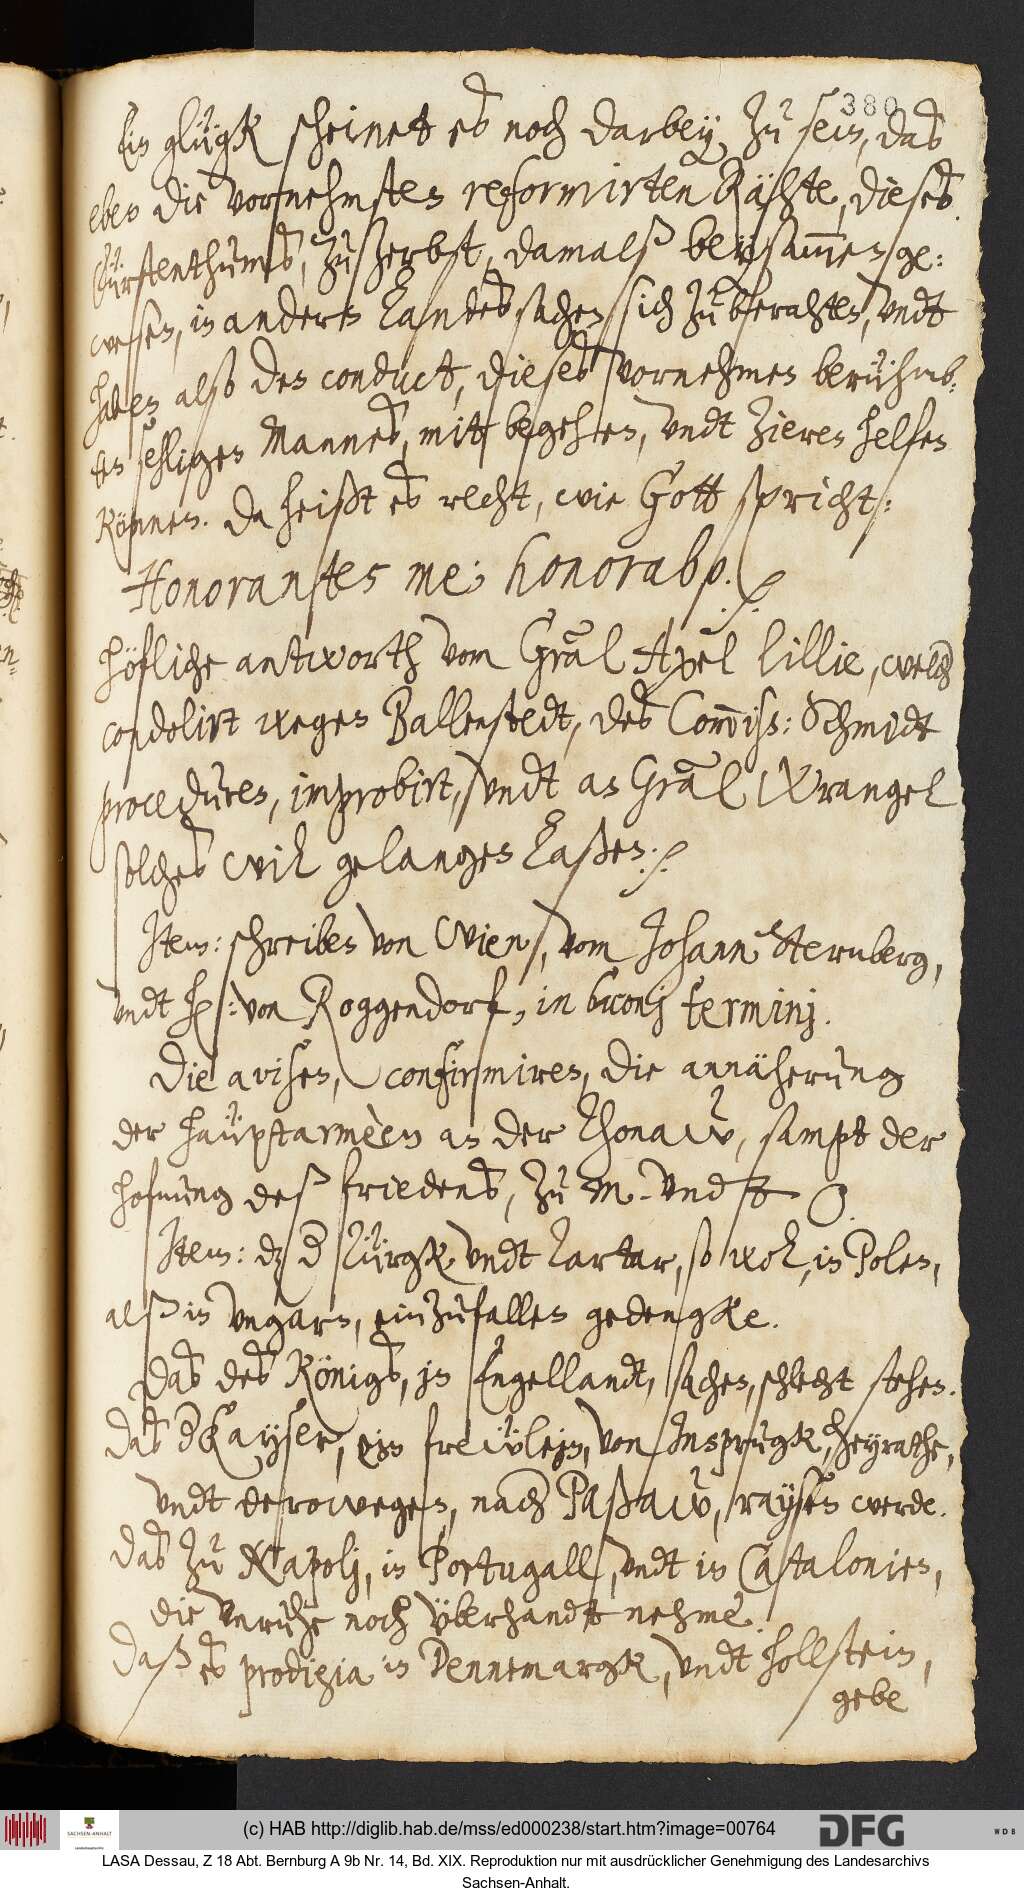 380
Ein glügk scheinet es noch darbey zu sein, das
eben die vornehmsten reformirten Rähte, dieses
Fürstenthums, zu Zerbst, damalß beysam̅en ge:
wesen, in andern Landes sachen sich zu berahten, undt
haben also den conduct, dieses vornehmen berühmb:
ten sehligen Mannes, mitt begehen, undt zieren helfen
können. Da heißt es recht, wie Gott spricht:
Honorantes me; honorabo. ./.
Höfliche antworth vom Gräl Axel Lillie, welch
condolirt wegen Ballenstedt, des Com̅iß: Schmidt
proceduren, improbirt, undt an Gräl Wrangel
solches will gelangen laßen. ./.
Item: schreiben von Wien, vom Johann Sternberg,
undt H: von Roggendorf, in buonj terminj.
Die avisen, confirmiren, die annäherung
der häuptarmèen an der Thonaw, sampt der
hofnung deß friedens, zu M. undt O.
Item: dz d Türgk undt Tartar, so wol, in Polen,
alß in Ungarn, einzufallen gedengke.
Das des Königs, in Engellandt, sachen, schlecht stehen.
Das d Kayser, ein frewlein, von Insprugk, heyrathe,
undt derowegen, nach Paßaw, raysen werde.
Das zu Napolj, in Portugall, undt in Catalonien,
die unruhe noch überhandt nehme.
Daß es prodigia in Dennemargk, undt Hollstein,
gebe
(c) HAB http://diglib.hab.de/mss/ed000238/start.htm?image=00764
SACHSEN-ANHALT
DFG
WDB
LASA Dessau, Z 18 Abt. Bernburg A 9b Nr. 14, Bd. XIX. Reproduktion nur mit ausdrücklicher Genehmigung des Landesarchivs
Sachsen-Anhalt.